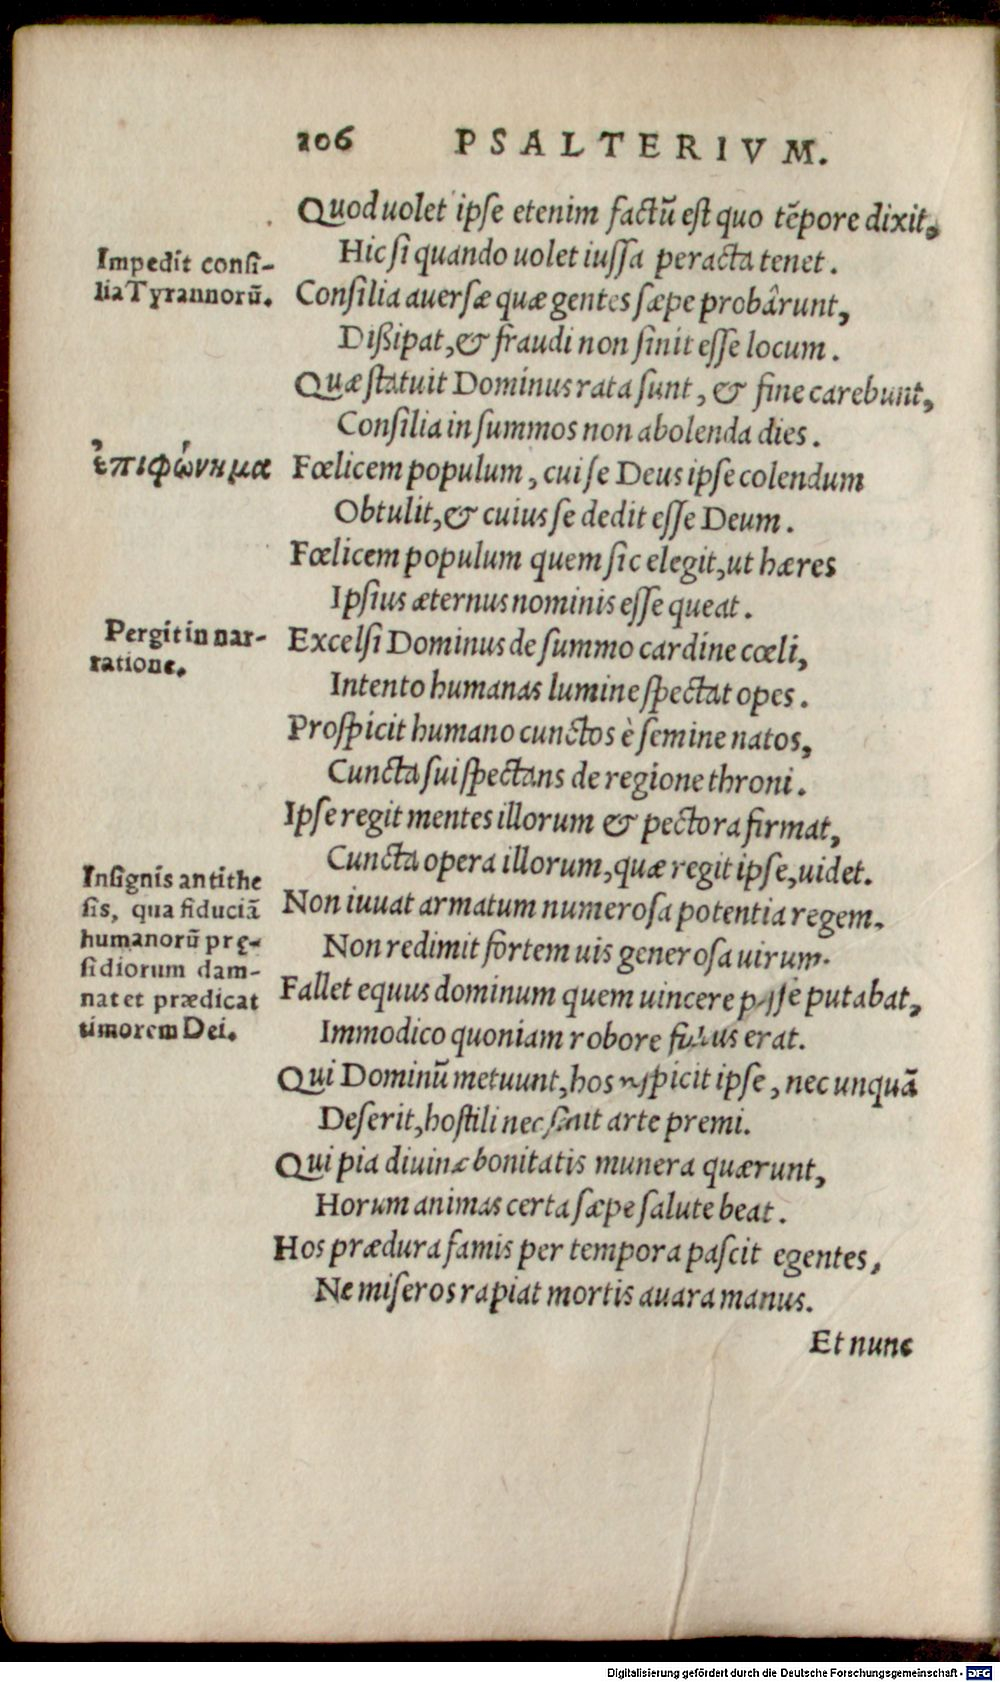 106 PSALTERIVM.
Quod uolet ipse etenim factũ est quo tẽpore dixit,
Hic si quando uolet iussa peracta tenet.
Impedit consi-
lia Tyrannorũ.
Consilia auersæ quæ gentes sæpe probârunt,
Dißipat, & fraudi non sinit esse locum.
Quæ statuit Dominus rata sunt, & fine carebunt,
Consilia in summos non abolenda dies.
ἐπιφώνημα
Fœlicem populum, cui se Deus ipse colendum
Obtulit, & cuius se dedit esse Deum.
Fœlicem populum quem sic elegit, ut hæres
Ipsius æternus nominis esse queat.
Pergit in nar-
ratione.
Excelsi Dominus de summo cardine cœli,
Intento humanas lumine spectat opes.
Prospicit humano cunctos è semine natos,
Cuncta sui spectans de regione throni.
Ipse regit mentes illorum & pectora firmat,
Cuncta opera illorum, quæ regit ipse, uidet.
Insignis antithe
sis, qua fiduciã
humanorũ prę-
sidiorum dam-
nat et prædicat
timorem Dei.
Non iuuat armatum numerosa potentia regem,
Non redimit fortem uis generosa uirum.
Fallet equus dominum quem uincere posse putabat,
Immodico quoniam robore erat.
Qui Dominũ metuunt, hos ipse, nec unquã
Deserit, hostili nec sinit arte premi.
Qui pia diuinæ bonitatis munera quærunt,
Horum animas certa sæpe salute beat.
Hos prædura famis per tempora pascit egentes,
Ne miseros rapiat mortis auara manus.
Et nunc
Digitalisierung gefördert durch die Deutsche Forschungsgemeinschaft - DFG